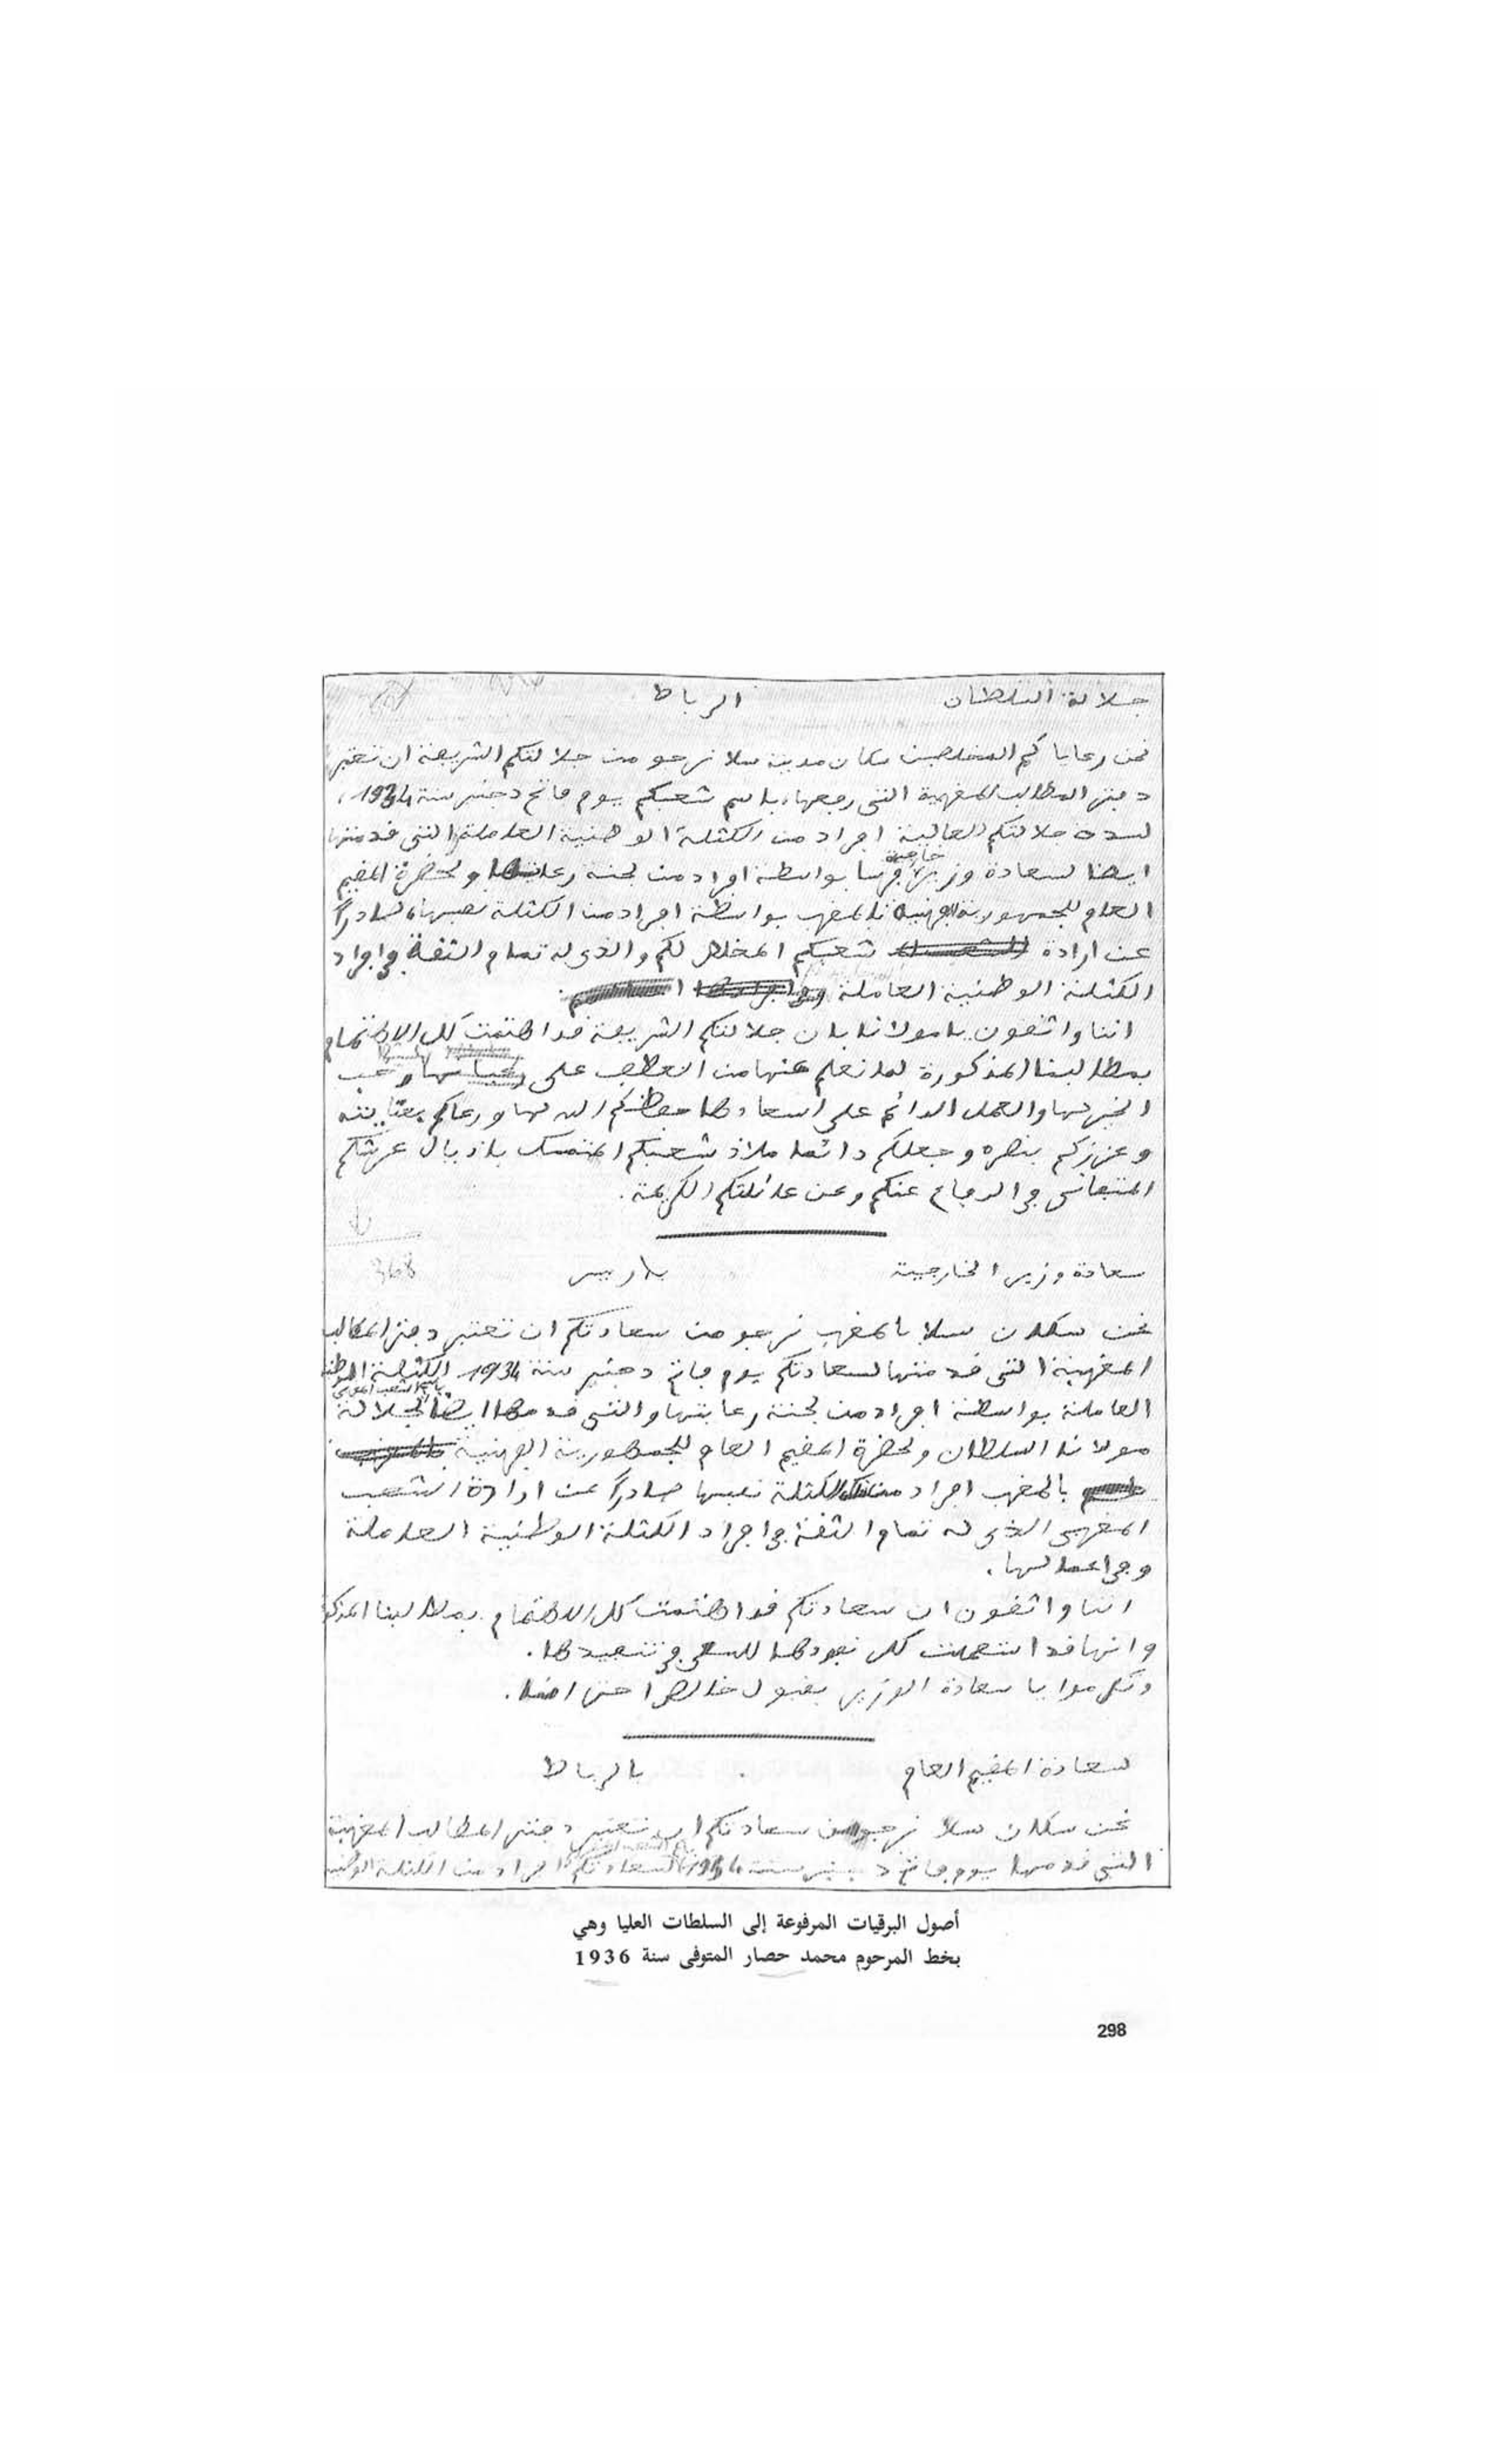 جلالة السلطان الرباط
نحن رعاياكم المخلصين سكان مدينة سلا نرجو من جلالتكم الشريفة ان تعتبر
دفتر المطالب المغربية التي رفعها، باسم شعبكم يوم فاتح دجنبر سنة 1934،
لسدة جلالتكم العالية افراد من الكتلة الوطنية العاملة والتي قدمتها
ايضا لسعادة وزير خارجية فرنسا بواسطة افراد من لجنة رعايتها ولحضرة المقيم
العام للجمهورية الفرنسية بالمغرب بواسطة افراد من الكتلة نفسها، صادراً
عن ارادة شعبكم المخلص لكم والذي له تمام الثقة في افراد
الكتلة الوطنية العاملة
اننا واثقون يا مولانا بان جلالتكم الشريفة قد اهتمت كل الاهتمام
بمطالبنا المذكورة لما نعلم عنها من العطف على وحب
الخير لها والعمل الدائم على اسعادها حفظكم الله لها ورعاكم بعنايته
وعززكم بنصره وجعلكم دائما ملاذ شعبكم المتمسك باذيال عرشكم
المتفاني في الدفاع عنكم وعن عائلتكم الكريمة.
سعادة وزير الخارجية باريس
368
نحن سكان سلا بالمغرب نرجو من سعادتكم ان تعتبر دفتر المطالب
المغربية التي قدمتها لسعادتكم يوم فاتح دجنبر سنة 1934 الكتلة الوطنية
باسم الشعب المغربي
العاملة بواسطة افراد من لجنة رعايتها والتي قدمها ايضا لجلالة
مولانا السلطان ولحضرة المقيم العام للجمهورية الفرنسية
بالمغرب افراد من الكتلة نفسها صادراً عن ارادة الشعب
المغربي الذي له تمام الثقة في افراد الكتلة الوطنية العاملة
وفي اعمالها.
اننا واثقون ان سعادتكم قد اهتمت كل الاهتمام بمطالبنا المذكورة
وانها قد استعملت كل نفوذها للسعي في تنفيذها.
وتكرموا يا سعادة الوزير بقبول خالص احترامنا.
لسعادة المقيم العام بالرباط
نحن سكان سلا نرجو من سعادتكم ان تعتبر دفتر المطالب المغربية
التي قدمها يوم فاتح دجنبر سنة 1934 لسعادتكم افراد من الكتلة الوطنية
أصول البرقيات المرفوعة إلى السلطات العليا وهي
بخط المرحوم محمد حصار المتوفى سنة 1936
298